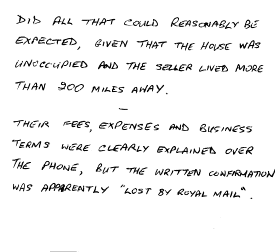 DID ALL THAT COULD REASONABLY BE
EXPECTED, GIVEN THAT THE HOUSE WAS
UNOCCUPIED AND THE SELLER LIVED MORE
THAN 200 MILES AWAY.
—
THEIR FEES, EXPENSES AND BUSINESS
TERMS WERE CLEARLY EXPLAINED OVER
THE PHONE, BUT THE WRITTEN CONFIRMATION
WAS APPARENTLY "LOST BY ROYAL MAIL".